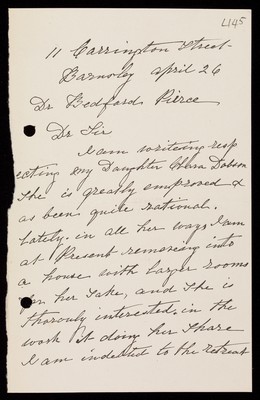 L145
11 Carrington Street
Barnsley April 26
Dr Bedford Pierce
Dr Sir
I am writeing resp
ecting my Daughter Dobson
She is greatly emproved &
as been quite rational.
Lately. in all her ways I am
at Present removeing into
a house with larger rooms
for her Sake, and She is
thorouly interested. in the
work & doing her Share
I am indebted to the retreat